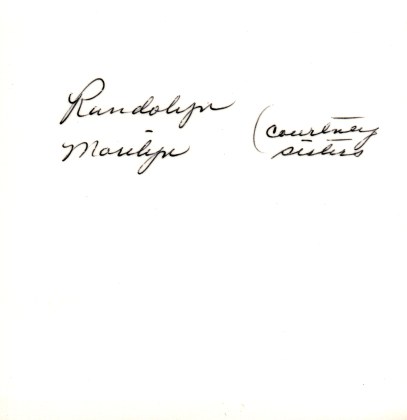 Randolyn
Marilyn
(Courtney
sisters